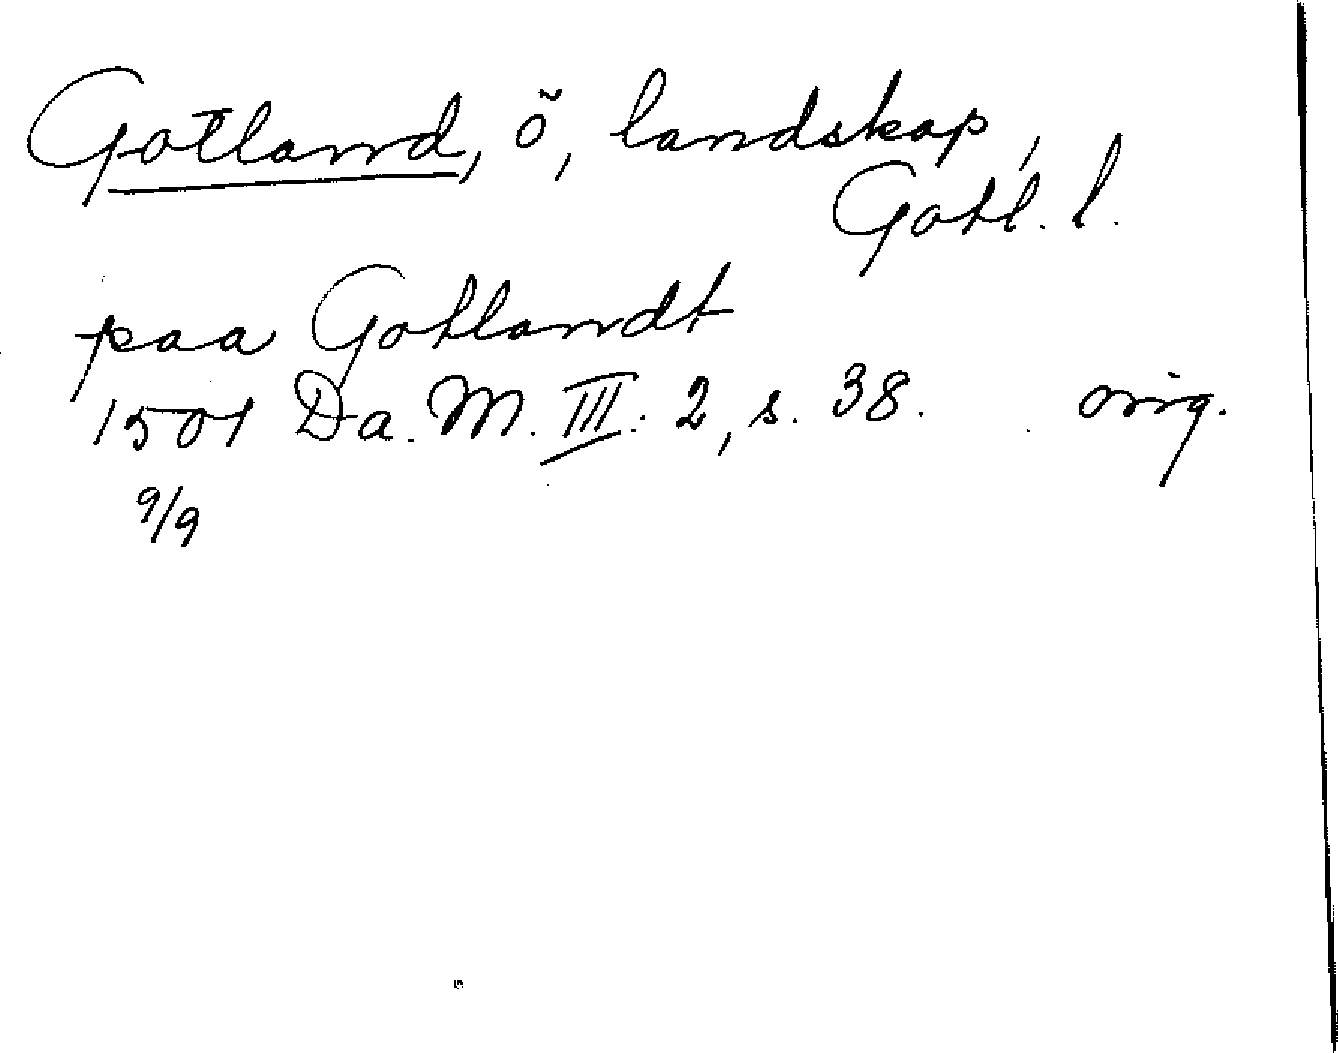 Gotland, ö, landskap,
Gotl. l.
paa Gotlandt
1501 Da. M. III: 2, s. 38. orig.
9/9